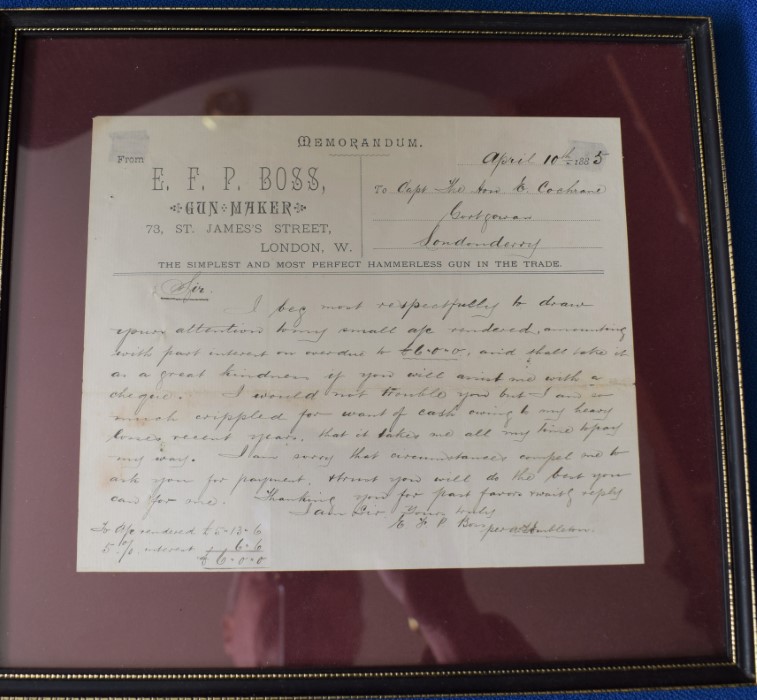 MEMORANDUM.
From
April 10th 1885
E. F. P. BOSS,
To Capt The Hon E. Cochrane
GUN MAKER
73, ST. JAMES'S STREET,
LONDON, W.
Londonderry
THE SIMPLEST AND MOST PERFECT HAMMERLESS GUN IN THE TRADE.
Sir.
I beg most respectfully to draw
your attention to my small a/c rendered, amounting
with past interest on overdue to £6-0-0, and shall take it
as a great kindness if you will assist me with a
cheque. I would not trouble you but I am so
much crippled for want of cash owing to my heavy
losses recent years, that it takes me all my time to pay
my way. I am sorry that circumstances compel me to
ask you for payment, & trust you will do the best you
can for me. Thanking you for past favors & waitg reply
I am Sir Yours truly
E F P Boss per
To a/c rendered £5-13-6
5 % interest 6-6
£6-0-0